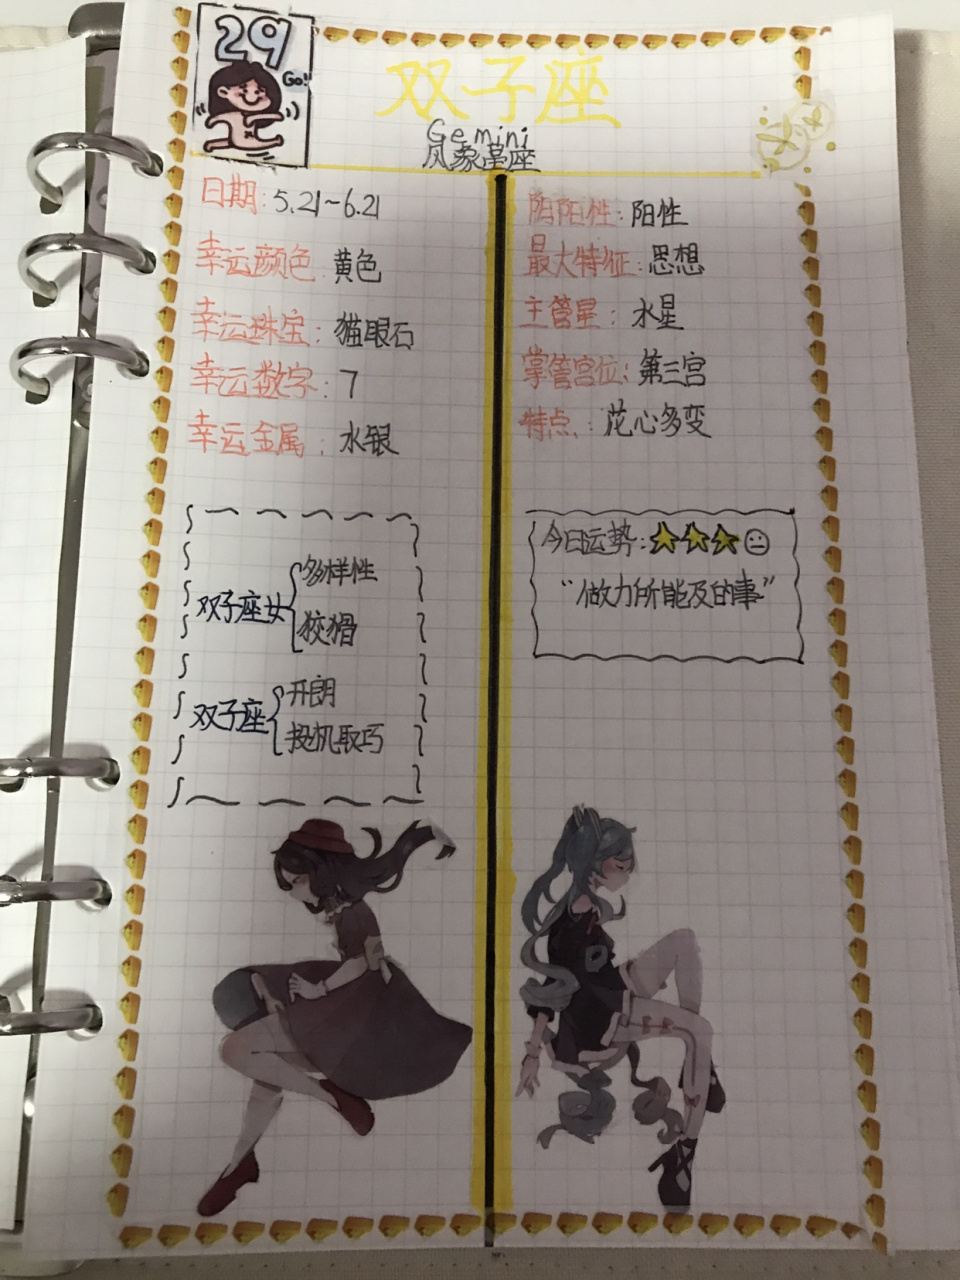 29
Go!
双子座
Gemini
风象星座
日期:5.21~6.21
幸运颜色:黄色
幸运珠宝:猫眼石
幸运数字:7
幸运金属:水银
阴阳性:阳性
最大特征:思想
主管星:水星
掌管宫位:第三宫
特点:花心多变
双子座女
多样性
狡猾
双子座
开朗
投机取巧
今日运势:
“做力所能及的事”